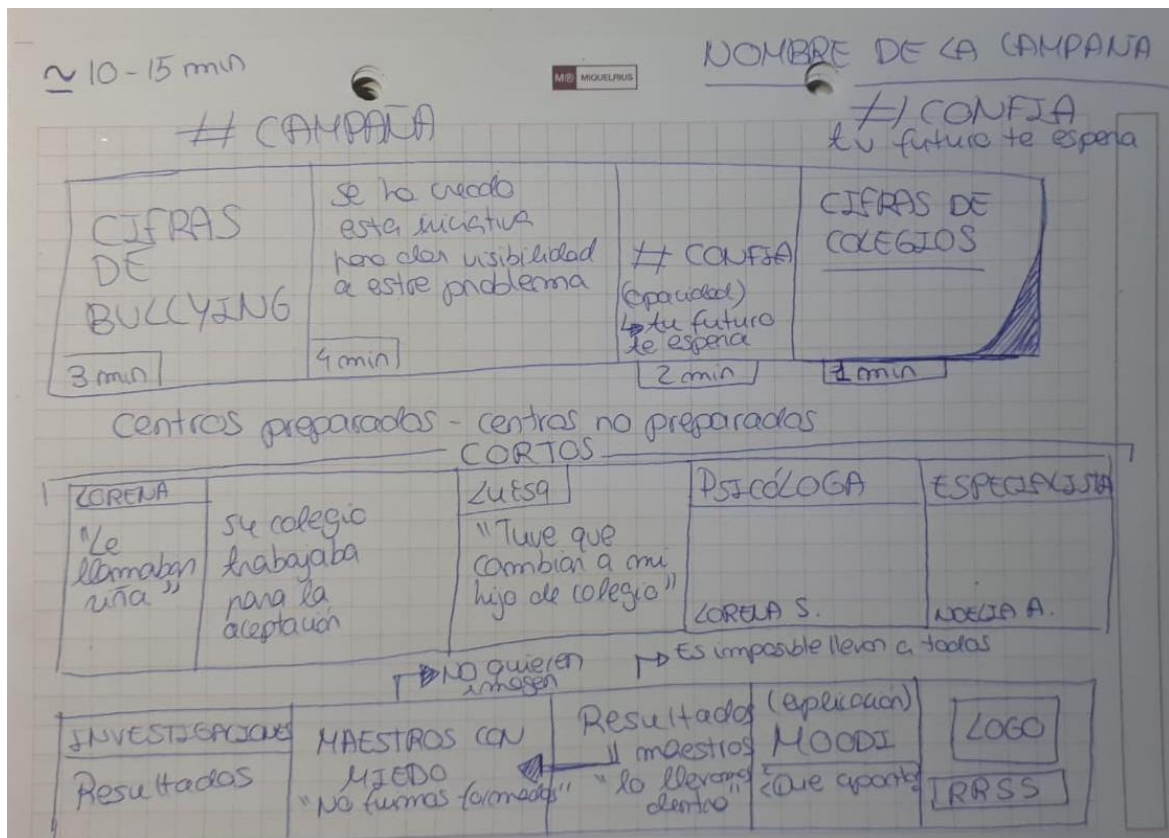 ≃ 10-15 min
M® MIQUELRIUS
NOMBRE DE LA CAMPAÑA
# CAMPAÑA
# CONFIA
tu futuro te espera
CIFRAS
DE
BULLYING
3 min
se ha creado
esta iniciativa
para dar visibilidad
a este problema
4 min
# CONFIA
(capacidad)
↳ tu futuro
te espera
2 min
CIFRAS DE
COLEGIOS
1 min
Centros preparados - centros no preparados
CORTOS
LORENA
"Le
llamaban
niña"
su colegio
trabajaba
para la
aceptación
"Tuve que
cambiar a mi
hijo de colegio"
PSICÓLOGA
LORENA S.
ESPECIALISTA
NOELIA A.
→ NO quieren
imagen
→ Es imposible llevar a todas
INVESTIGACIONES
Resultados
MAESTROS CON
MIEDO
"No fuimos formados"
Resultados
maestros
"lo llevamos
dentro"
(explicación)
MOODI
¿Que aporta
LOGO
RRSS